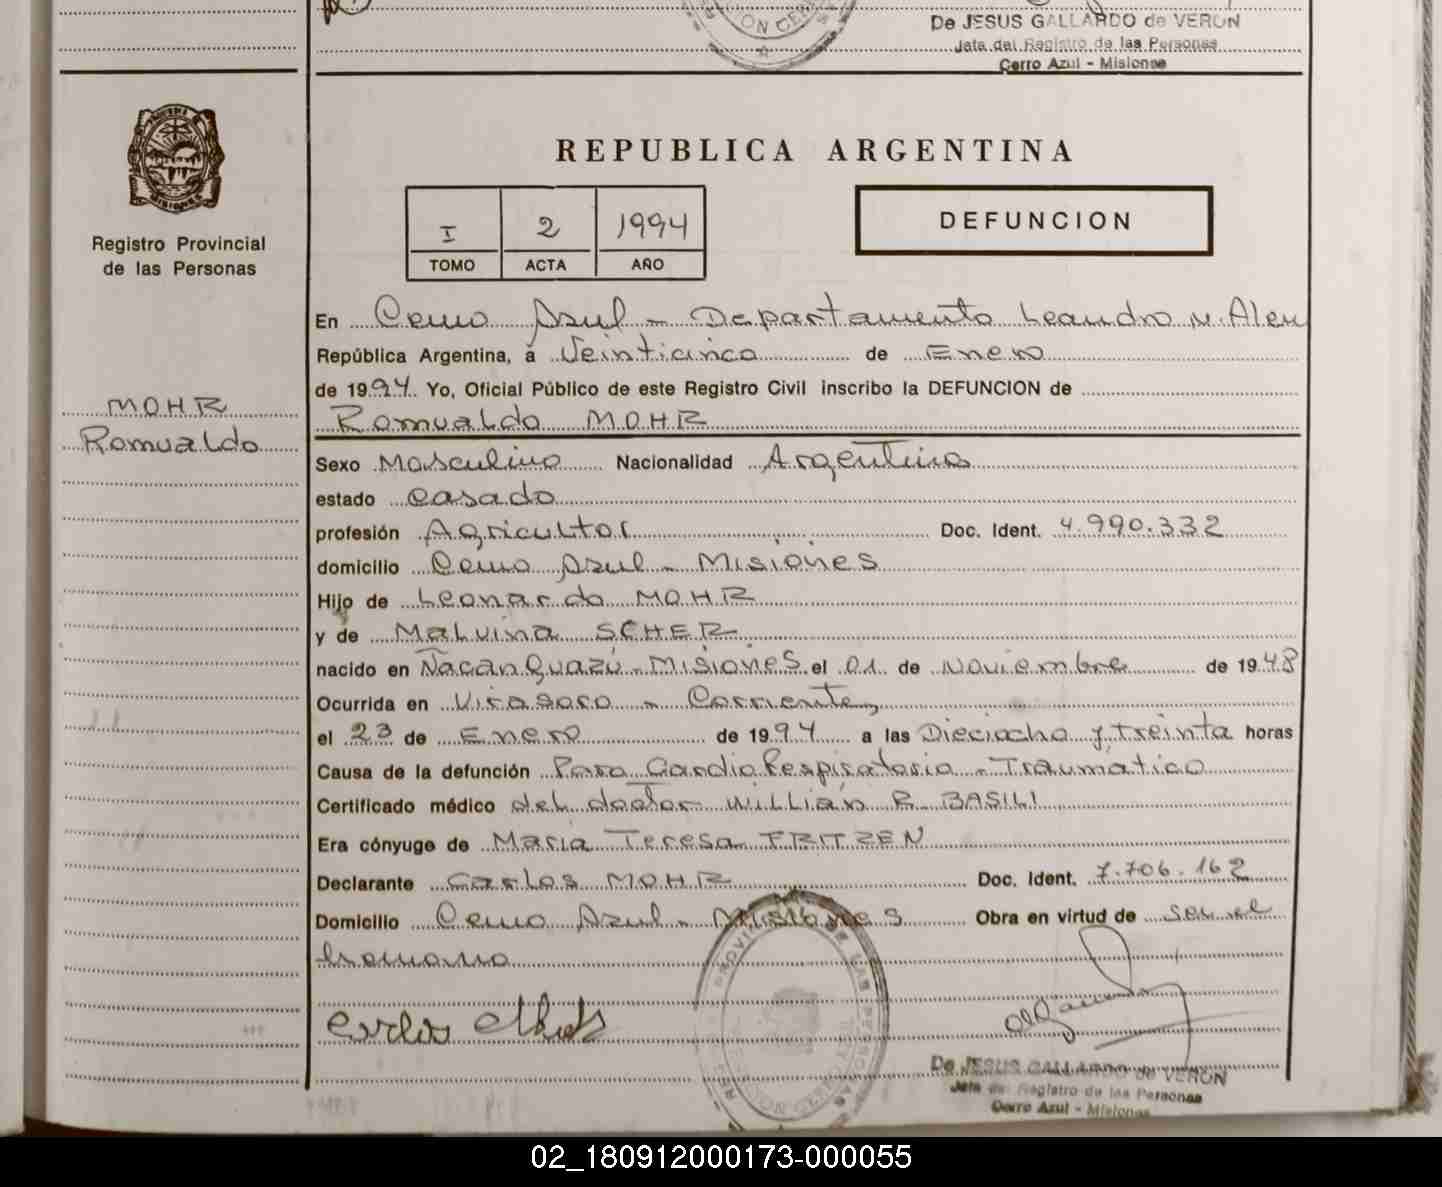 De JESUS GALLARDO de VERON
Jefa del Registro de las Personas
Cerro Azul - Misiones
MISIONES
Registro Provincial
de las Personas
REPUBLICA ARGENTINA
I 2 1994
TOMO ACTA AÑO
DEFUNCION
En Cerro Azul - Departamento Leandro N. Alem
República Argentina, a Veinticinco de Enero
de 1994 Yo, Oficial Público de este Registro Civil inscribo la DEFUNCION de
MOHR
Romualdo
Romualdo MOHR
Sexo Masculino Nacionalidad Argentina
estado Casado
profesión Agricultor Doc. Ident. 4.990.332
domicilio Cerro Azul - Misiones
Hijo de Leonardo MOHR
y de Malvina SCHER
nacido en Ñacanguazú - Misiones el 01 de Noviembre de 1948
Ocurrida en Virasoro - Corrientes
el 23 de Enero de 1994 a las Dieciocho y treinta horas
Causa de la defunción Paro Cardio Respiratorio - Traumático
Certificado médico del doctor Willián R. BASILI
Era cónyuge de María Teresa FRITZEN
Declarante Carlos MOHR Doc. Ident. 7.706.162
Domicilio Cerro Azul - Misiones Obra en virtud de ser el
hermano
Carlos
De JESUS GALLARDO de VERON
Jefa del Registro de las Personas
Cerro Azul - Misiones
02_180912000173-000055